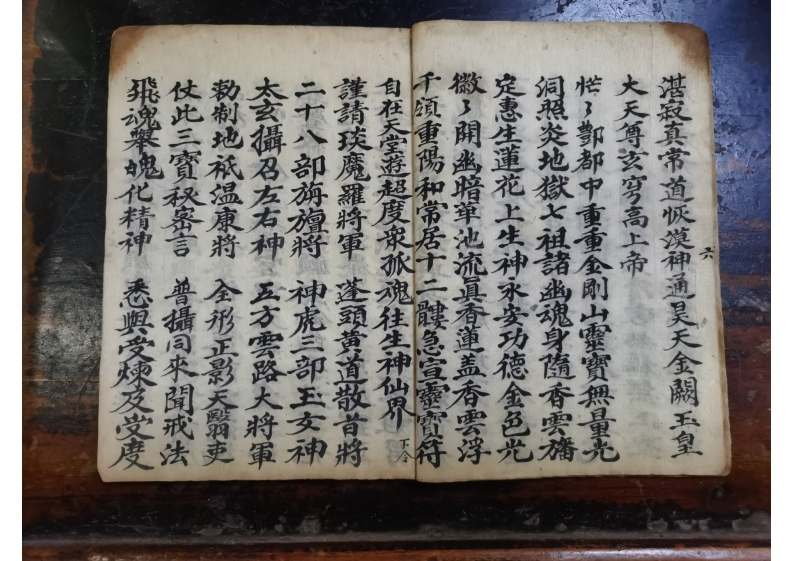 湛寂真常道恢漠神通昊天金闕玉皇
大天尊玄穹高上帝
茫々酆都中重重金剛山靈寶無量光
洞照炎地獄七祖諸幽魂身隨香雲旛
定惠生蓮花上生神永安功德金色光
微々開幽暗華池流真香蓮盖香雲浮
千領重陽和常居十二髅急宣靈寳符
自在天堂遊超度衆孤魂往生神仙界
下全
謹請琰魔羅將軍 蓬頭黄道散首將
二十八部旃旜將 神虎三部玉女神
太玄攝召左右神 五方雲路大將軍
勅制地祇温康將 全形正影天翳吏
仗此三寶秘宻言 普攝同來聞戒法
飛魂舉魄化精神 悉與受煉及受度
六